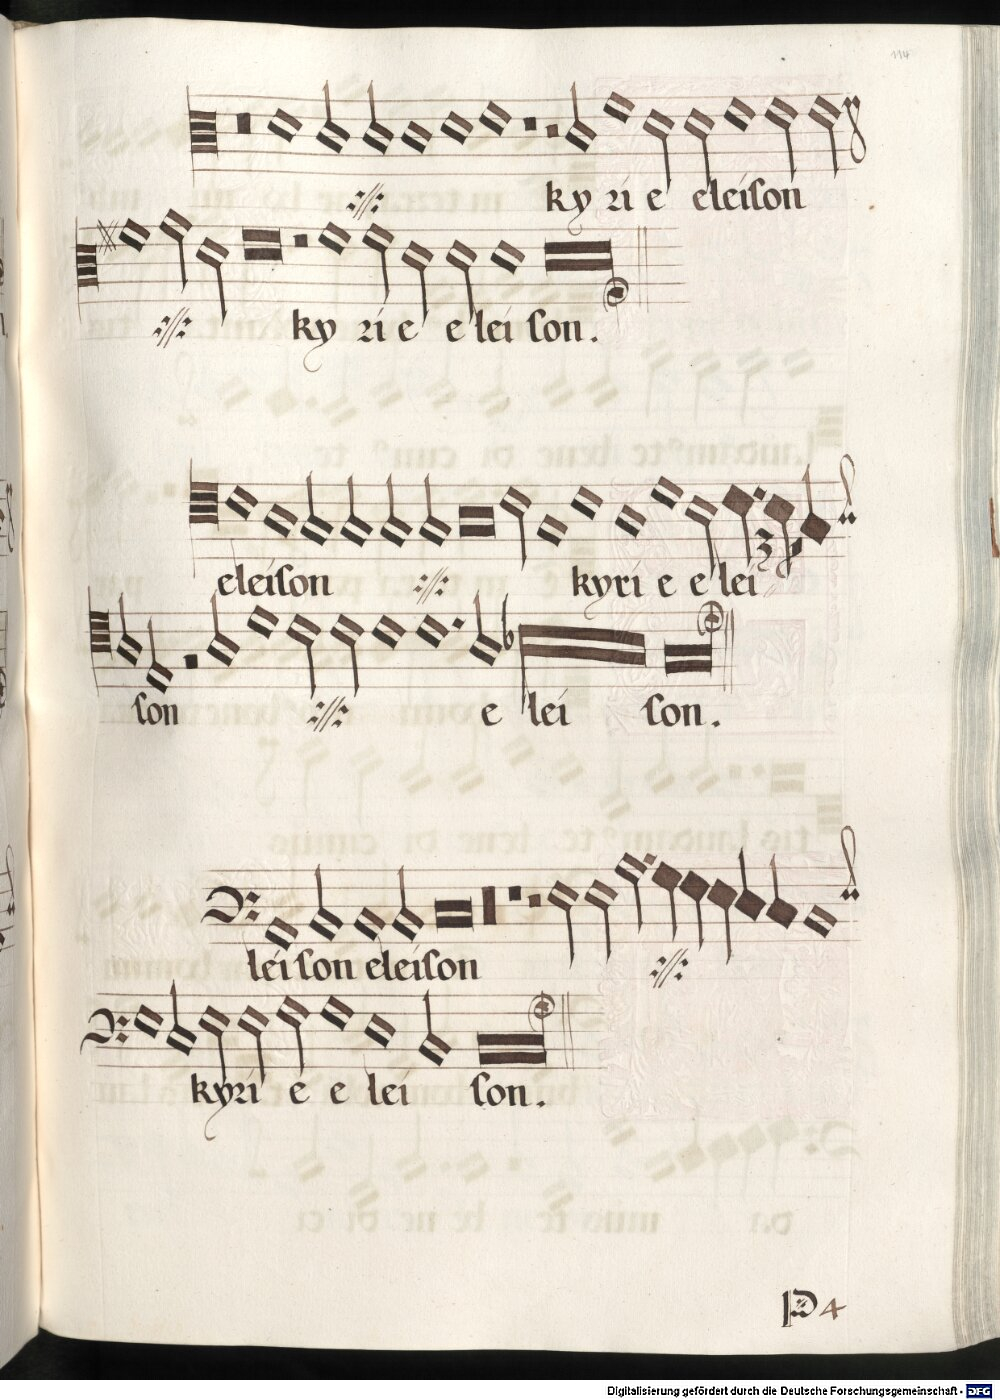 114
ky ri e eleison
ky ri e e lei son.
eleison kyri e e lei
son e lei son.
lei son eleison
kyri e e lei son.
P 4
Digitalisierung gefördert durch die Deutsche Forschungsgemeinschaft - DFG